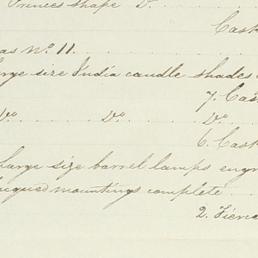 Princes shape Do.
Cask
as No. 11.
arge size India candle shades
7. Cas
Do. Do. Do.
6. Cask
Large size barrel lamps engr
mountings complete
2. Tierce